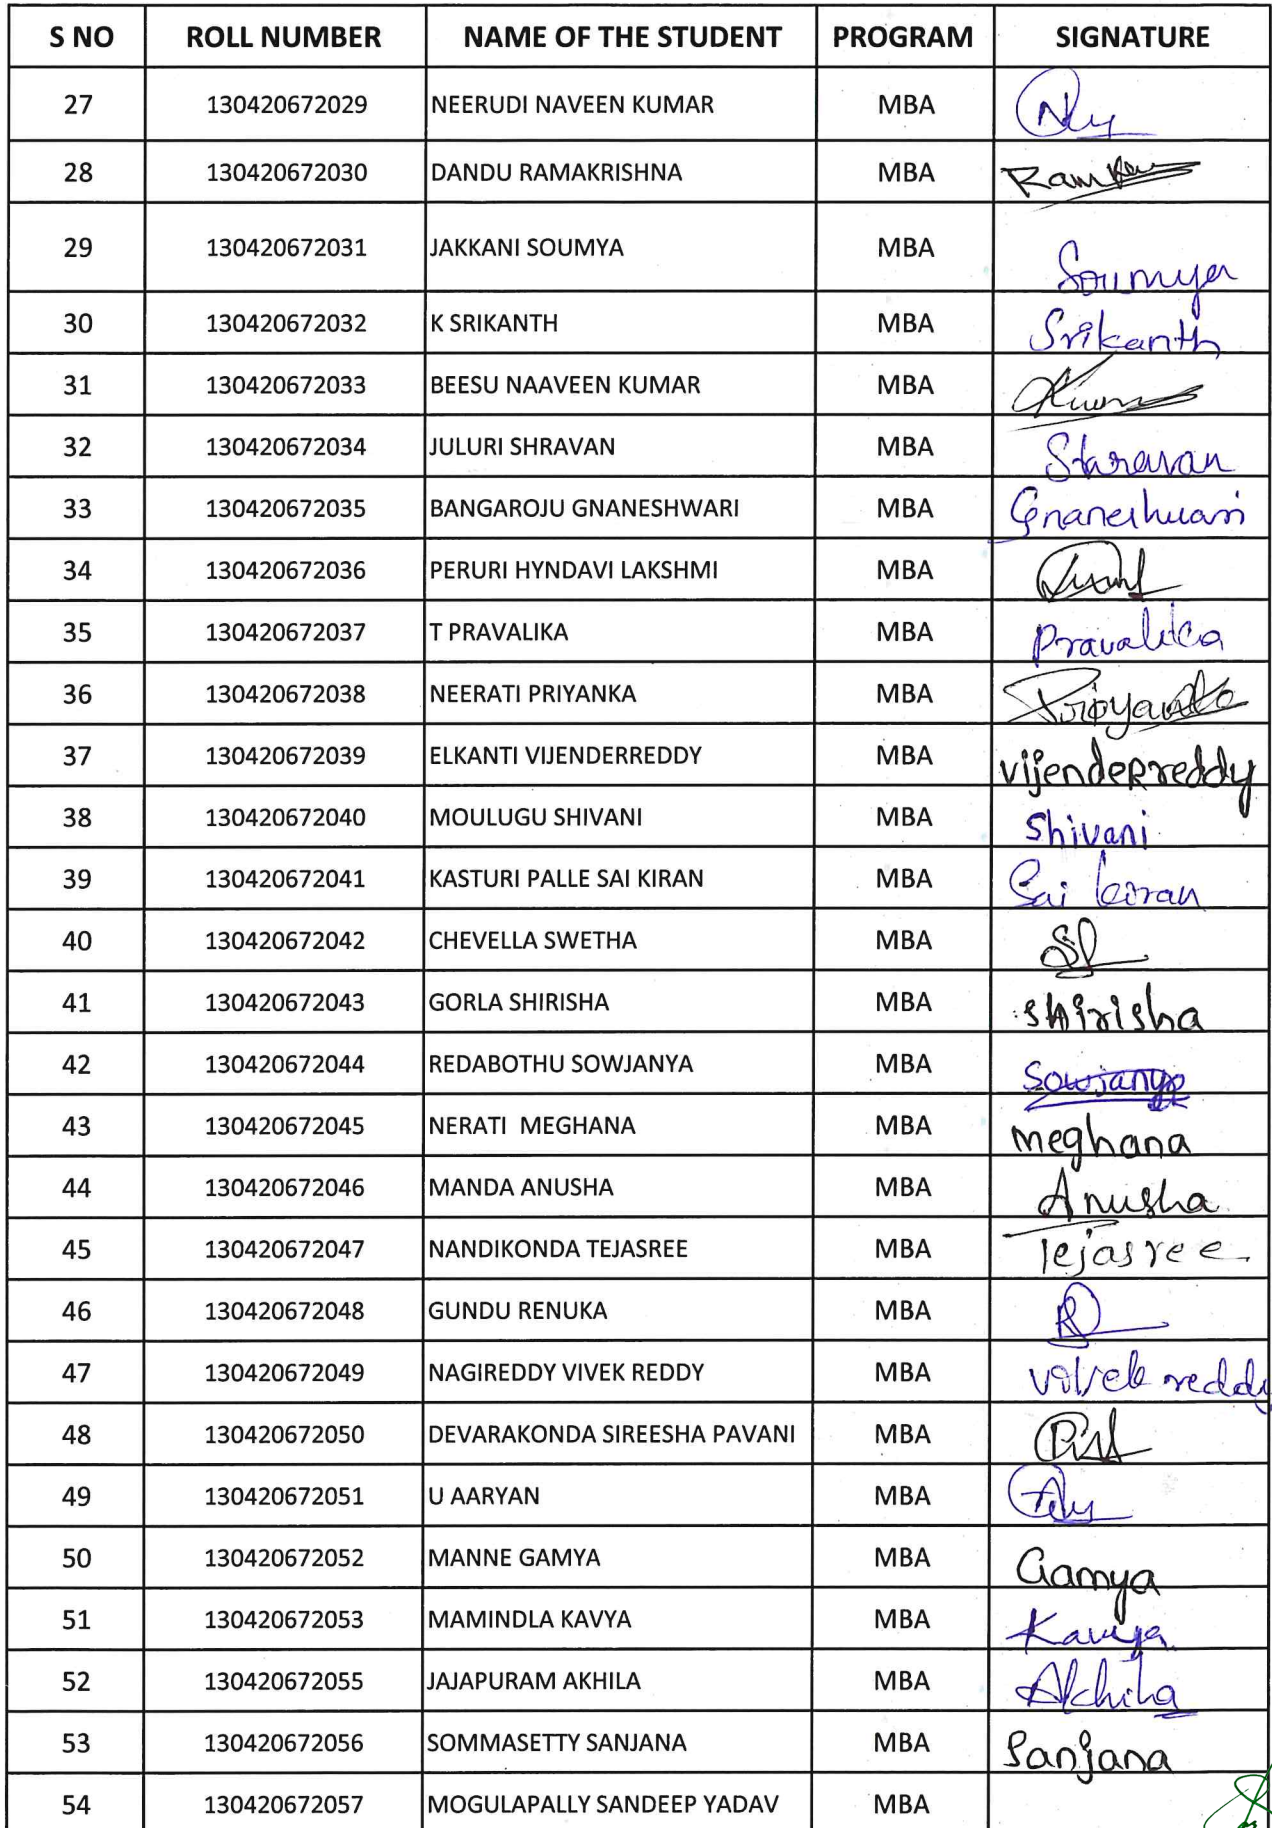 S NO ROLL NUMBER NAME OF THE STUDENT PROGRAM SIGNATURE
27 130420672029 NEERUDI NAVEEN KUMAR MBA
28 130420672030 DANDU RAMAKRISHNA MBA
29 130420672031 JAKKANI SOUMYA MBA Soumya
30 130420672032 K SRIKANTH MBA Srikanth
31 130420672033 BEESU NAAVEEN KUMAR MBA
32 130420672034 JULURI SHRAVAN MBA
33 130420672035 BANGAROJU GNANESHWARI MBA Gnaneshwari
34 130420672036 PERURI HYNDAVI LAKSHMI MBA
35 130420672037 T PRAVALIKA MBA Pravalika
36 130420672038 NEERATI PRIYANKA MBA Priyanka
37 130420672039 ELKANTI VIJENDERREDDY MBA vijenderreddy
38 130420672040 MOULUGU SHIVANI MBA Shivani
39 130420672041 KASTURI PALLE SAI KIRAN MBA Sai kiran
40 130420672042 CHEVELLA SWETHA MBA
41 130420672043 GORLA SHIRISHA MBA shirisha
42 130420672044 REDABOTHU SOWJANYA MBA Sowjanya
43 130420672045 NERATI MEGHANA MBA meghana
44 130420672046 MANDA ANUSHA MBA Anusha
45 130420672047 NANDIKONDA TEJASREE MBA Tejasree
46 130420672048 GUNDU RENUKA MBA
47 130420672049 NAGIREDDY VIVEK REDDY MBA vivek reddy
48 130420672050 DEVARAKONDA SIREESHA PAVANI MBA
49 130420672051 U AARYAN MBA
50 130420672052 MANNE GAMYA MBA Gamya
51 130420672053 MAMINDLA KAVYA MBA Kavya
52 130420672055 JAJAPURAM AKHILA MBA Akhila
53 130420672056 SOMMASETTY SANJANA MBA Sanjana
54 130420672057 MOGULAPALLY SANDEEP YADAV MBA